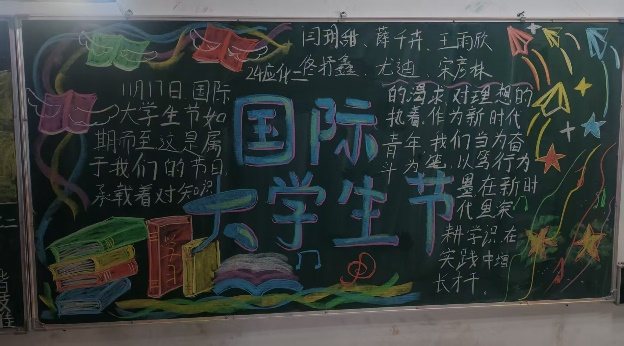 闫玥甜、薛千卉、王雨欣
24应化二 佟抒鑫、尤迪 宋彦林
国际
大学生节
11月17日国际
大学生节如
期而至这是属
于我们的节日,
承载着对知识
的渴求对理想的
执着.作为新时代
青年,我们当为奋
斗为笔,以写行为
墨在新时
代里深
耕学识在
实践中增
长才干.
学习